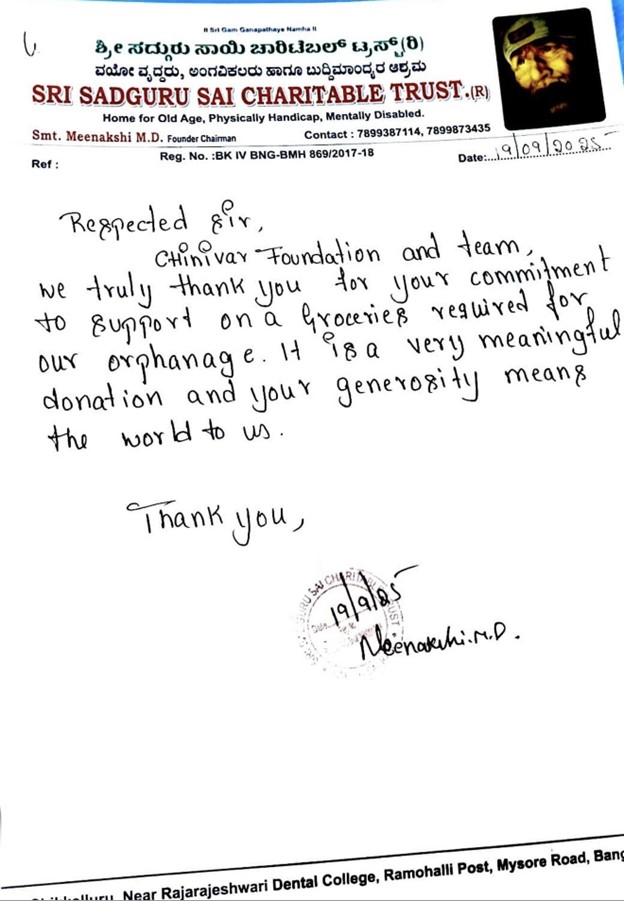 II Sri Gam Ganapathaye Namha II
ಶ್ರೀ ಸದ್ಗುರು ಸಾಯಿ ಚಾರಿಟೆಬಲ್ ಟ್ರಸ್ಟ್(ರಿ)
ವಯೋ ವೃದ್ಧರು, ಅಂಗವಿಕಲರು ಹಾಗೂ ಬುದ್ದಿಮಾಂದ್ಯರ ಆಶ್ರಮ
SRI SADGURU SAI CHARITABLE TRUST.(R)
Home for Old Age, Physically Handicap, Mentally Disabled.
Smt. Meenakshi M.D. Founder Chairman Contact : 7899387114, 7899873435
Ref : Reg. No. :BK IV BNG-BMH 869/2017-18 Date:...19/09/2025
Respected Sir,
Chinivar Foundation and team,
we truly thank you for your commitment
to support on a Groceries required for
our orphanage. It is a very meaningful
donation and your generosity means
the world to us.
Thank you,
GURU SAI CHARITABLE TRUST
19/9/25
Meenakshi.M.D.
Near Rajarajeshwari Dental College, Ramohalli Post, Mysore Road, Bang